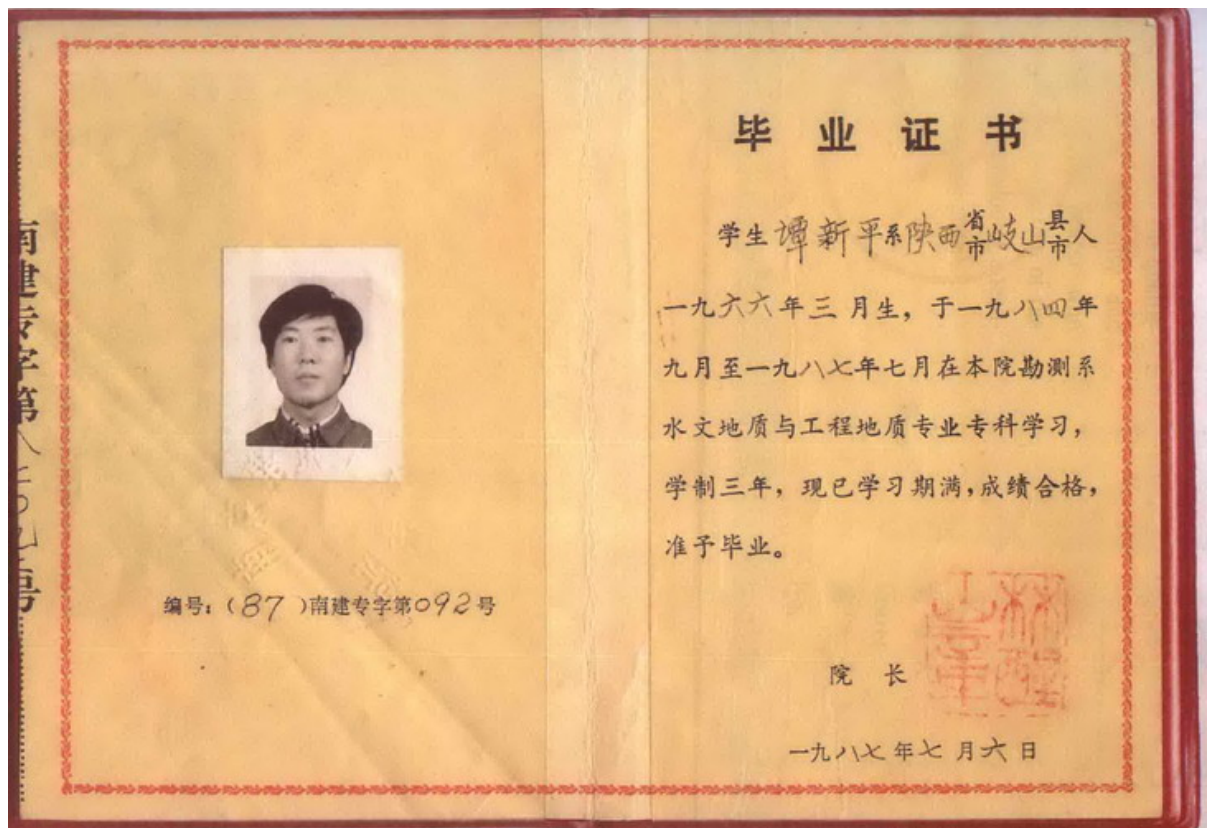 南建专字第八七〇九二号
编号:(87)南建专字第092号
毕业证书
学生 谭新平系陕西省市岐山县市人
一九六六年三月生,于一九八四年
九月至一九八七年七月在本院勘测系
水文地质与工程地质专业专科学习,
学制三年,现已学习期满,成绩合格,
准予毕业。
院长
一九八七年七月六日